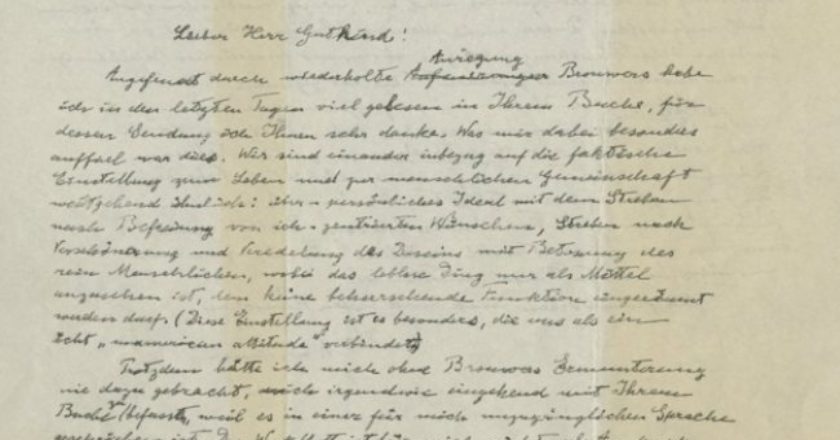 Lieber Herr Gutkind!
Angefeuert durch wiederholte Anregung Brouwers habe
ich in den letzten Tagen viel gelesen in Ihrem Buche, für
dessen Sendung ich Ihnen sehr danke. Was mir dabei besonders
auffiel war dies. Wir sind einander inbezug auf die faktische
Einstellung zum Leben und zur menschlichen Gemeinschaft
weitgehend ähnlich: über-persönliches Ideal mit dem Streben
nach Befreiung von ich-zentrierten Wünschen, Streben nach
Verschönerung und Veredelung des Daseins mit Betonung des
rein Menschlichen, wobei das leblose Ding nur als Mittel
anzusehen ist, dem keine beherrschende Funktion eingeräumt
werden darf. (Diese Einstellung ist es besonders, die uns als ein
echt „unamerican attitude“ verbindet)
Trotzdem hätte ich mich ohne Brouwers Ermunterung
nie dazu gebracht, mich irgendwie eingehend mit Ihrem
Buche zu befassen, weil es in einer für mich unzugänglichen Sprache
geschrieben ist. Das Wort Gott ist für mich nichts als